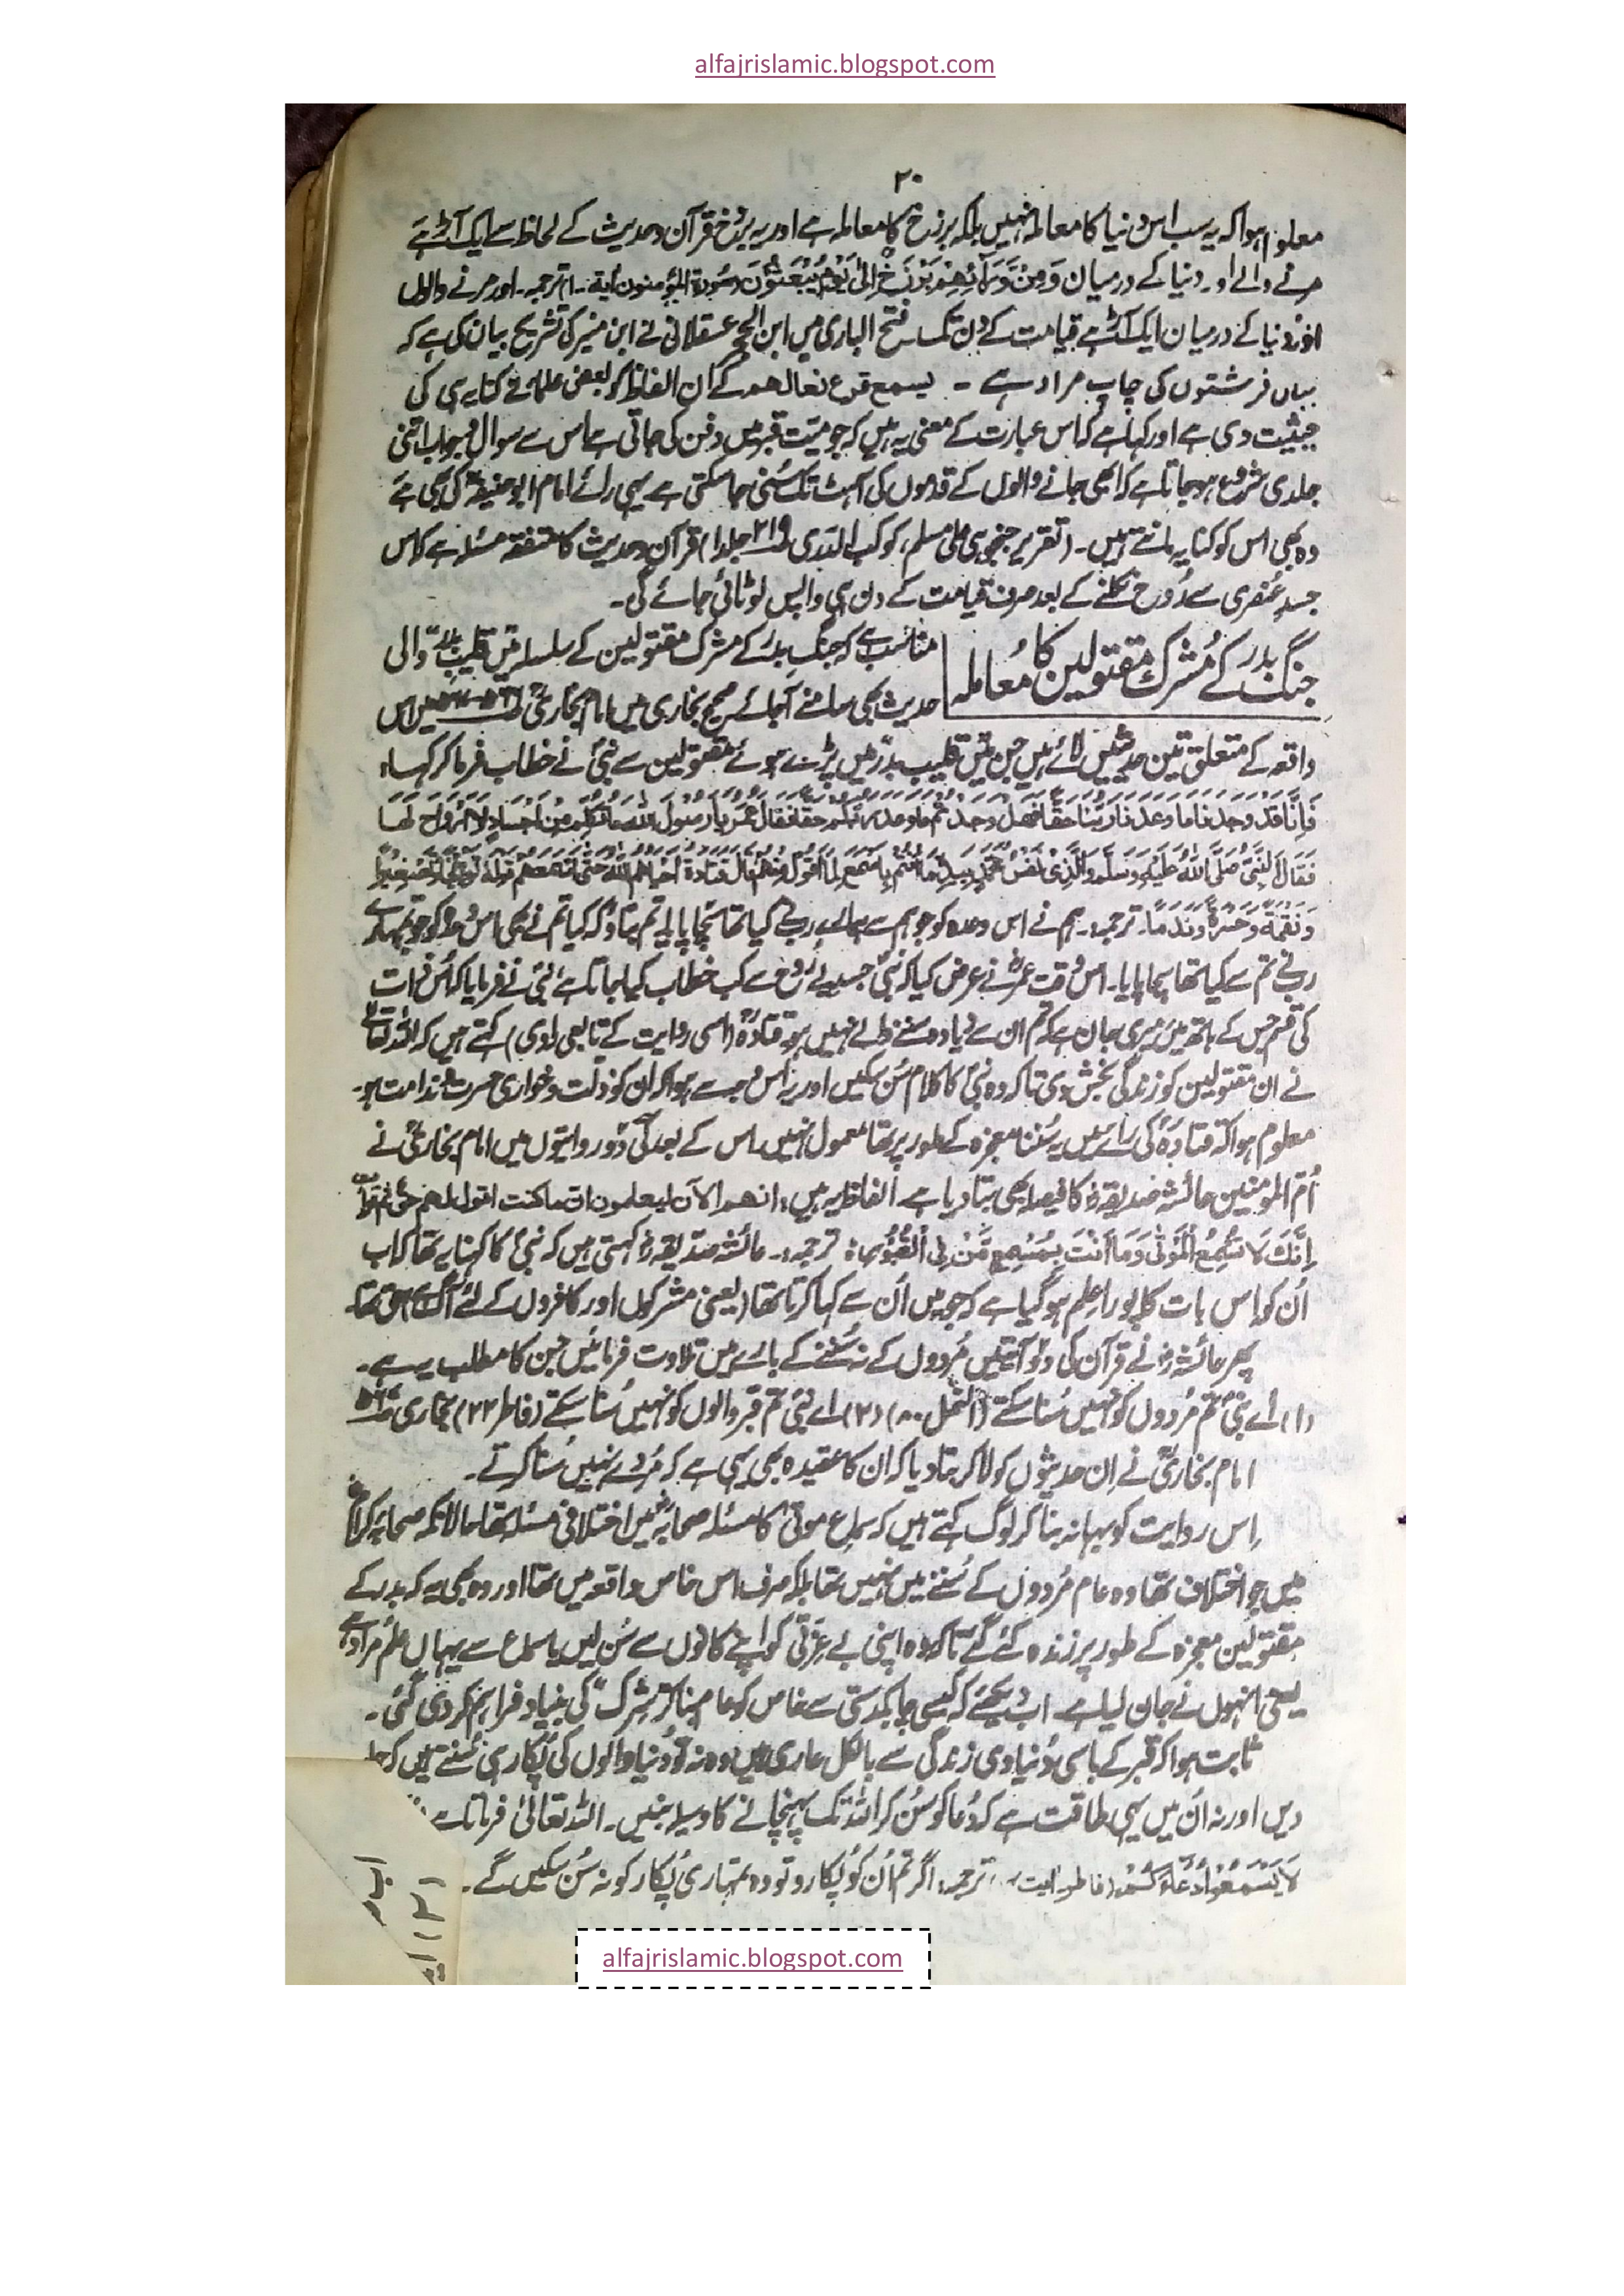 alfajrislamic.blogspot.com
۲۰
معلوم ہوا کہ یہ سب اس دنیا کا معاملہ نہیں بلکہ برزخ کا معاملہ ہے اور یہ برزخ قرآن و حدیث کے لحاظ سے ایک آڑ ہے
مرنے والے اور دنیا کے درمیان وَمِنْ وَّرَآئِهِمْ بَرْزَخٌ اِلٰى يَوْمِ يُبْعَثُوْنَ (سورة المؤمنون آیة ) ترجمہ۔ اور مرنے والوں
اور دنیا کے درمیان ایک آڑ ہے قیامت کے دن تک۔ فتح الباری میں ابن الحجر عسقلانی نے ابن منیر کی تشریح بیان کی ہے کہ
یہاں فرشتوں کی چاپ مراد ہے ۔ یسمع قرع نعالهم کے ان الفاظ کو بعض علماء نے کنایہ ہی کی
حیثیت دی ہے اور کہا ہے کہ اس عبارت کے معنی یہ ہیں کہ جو میّت قبر میں دفن کی جاتی ہے اس سے سوال و جواب اتنی
جلدی شروع ہو جاتا ہے کہ ابھی جانے والوں کے قدموں کی آہٹ تک سُنی جا سکتی ہے یہی رائے امام ابو حنیفہؒ کی بھی ہے
وہ بھی اس کو کنایہ مانتے ہیں۔ (تقریر جنجوہی علی مسلم، کوکب الدری ص۳۱۹ جلد۱) قرآن و حدیث کا متفقہ مسئلہ ہے کہ اس
جسدِ عُنصری سے رُوح نکلنے کے بعد صرف قیامت کے دن ہی واپس لوٹائی جائے گی۔
جنگ بدر کے مُشرک مقتولین کا معاملہ
مناسب ہے کہ جنگِ بدر کے مشرک مقتولین کے سلسلہ میں قلیبِ بدر والی
حدیث بھی سامنے آجائے صحیح بخاری میں امام بخاریؒ میں اس
واقعہ کے متعلق تین حدیثیں لائے ہیں جن میں قلیب بدر میں پڑے ہوئے مقتولین سے نبیؐ نے خطاب فرما کر کہا:
فَاِنَّا قَدْ وَجَدْنَا مَا وَعَدَنَا رَبُّنَا حَقًّا فَهَلْ وَجَدْتُّمْ مَّا وَعَدَ رَبُّكُمْ حَقًّا فَقَالَ عُمَرُ يَا رَسُوْلَ اللهِ مَا تُكَلِّمُ مِنْ اَجْسَادٍ لَا اَرْوَاحَ لَهَا
فَقَالَ النَّبِيُّ صَلَّى اللهُ عَلَيْهِ وَسَلَّمَ وَالَّذِيْ نَفْسُ مُحَمَّدٍ بِيَدِهٖ مَا اَنْتُمْ بِاَسْمَعَ لِمَا اَقُوْلُ مِنْهُمْ قَالَ قَتَادَةُ اَحْيَاهُمُ اللهُ حَتّٰى اَسْمَعَهُمْ قَوْلَهٗ تَوْبِيْخًا وَّتَصْغِيْرًا
وَنَقْمَةً وَّحَسْرَةً وَّنَدَمًا۔ ترجمہ:۔ ہم نے اس وعدہ کو جو ہم سے ہمارے رب نے کیا تھا سچا پا لیا تم بتاؤ کہ کیا تم نے بھی اس وعدہ کو جو تمہارے
رب نے تم سے کیا تھا سچا پایا۔ اس وقت عمرؓ نے عرض کیا کہ نبیؐ جسدِ بے رُوح سے کب خطاب کیا جاتا ہے نبیؐ نے فرمایا کہ اُس ذات
کی قسم جس کے ہاتھ میں میری جان ہے کہ تم ان سے زیادہ سننے والے نہیں ہو قتادہؒ (اسی روایت کے تابعی راوی) کہتے ہیں کہ اللہ تعالیٰ
نے ان مقتولین کو زندگی بخش دی تاکہ وہ نبیؐ کا کلام سُن سکیں اور یہ اس وجہ سے ہوا کہ ان کو ذلّت و خواری حسرت و ندامت ہو۔
معلوم ہوا کہ قتادہؒ کی رائے میں یہ سُننا معجزہ کے طور پر تھا معمول نہیں۔ اس کے بعد کی دو روایتوں میں امام بخاریؒ نے
اُمّ المومنین عائشہ صدیقہؓ کا فیصلہ بھی بتا دیا ہے الفاظ یہ ہیں: انهم الآن لیعلمون ان ما کنت اقول لهم حق ثم قرأت
اِنَّكَ لَا تُسْمِعُ الْمَوْتٰى وَمَا اَنْتَ بِمُسْمِعٍ مَّنْ فِى الْقُبُوْرِ ترجمہ:۔ عائشہ صدّیقہؓ کہتی ہیں کہ نبیؐ کا کہنا یہ تھا کہ اب
اُن کو اِس بات کا پورا علم ہو گیا ہے کہ جو میں اُن سے کہا کرتا تھا (یعنی مشرکوں اور کافروں کے لئے آگ ہے) حق تھا۔
پھر عائشہؓ نے قرآن کی دو آیتیں مُردوں کے نہ سُننے کے بارے میں تلاوت فرمائیں جن کا مطلب یہ ہے۔
(۱) اے نبیؐ تم مُردوں کو نہیں سُنا سکتے (النمل ۸۰) (۲) اے نبیؐ تم قبر والوں کو نہیں سُنا سکتے (فاطر ۲۲) بخاری
امام بخاریؒ نے اِن حدیثوں کو لا کر بتا دیا کہ ان کا عقیدہ بھی یہی ہے کہ مُردے نہیں سُنا کرتے۔
اِس روایت کو بہانہ بنا کر لوگ کہتے ہیں کہ سماع موتیٰ کا مسئلہ صحابہؓ میں اختلافی مسئلہ تھا حالانکہ صحابہ کرامؓ
میں جو اختلاف تھا وہ عام مُردوں کے سُننے میں نہیں تھا بلکہ صرف اس خاص واقعہ میں تھا اور وہ بھی یہ کہ بدر کے
مقتولین معجزہ کے طور پر زندہ کئے گئے تاکہ وہ اپنی بے عزتی کو اپنے کانوں سے سُن لیں یا سماع سے یہاں علم مراد ہے
یعنی انہوں نے جان لیا ہے۔ اب دیکھئے کہ کیسی چابکدستی سے خاص کو عام بنا کر "شرک" کی بنیاد فراہم کر دی گئی۔
ثابت ہوا کہ قبر کے باسی دُنیاوی زندگی سے بالکل عاری ہیں وہ نہ تو دُنیا والوں کی پُکار ہی سُنتے ہیں کہ
دیں اور نہ اُن میں یہی طاقت ہے کہ دُعا کو سُن کر اللہ تک پہنچانے کا وسیلہ بنیں۔ اللہ تعالیٰ فرماتا ہے
لَا يَسْمَعُوْا دُعَآءَكُمْ (فاطر آیت ) ترجمہ: اگر تم اُن کو پُکارو تو وہ تمہاری پُکار کو نہ سُن سکیں گے۔
alfajrislamic.blogspot.com